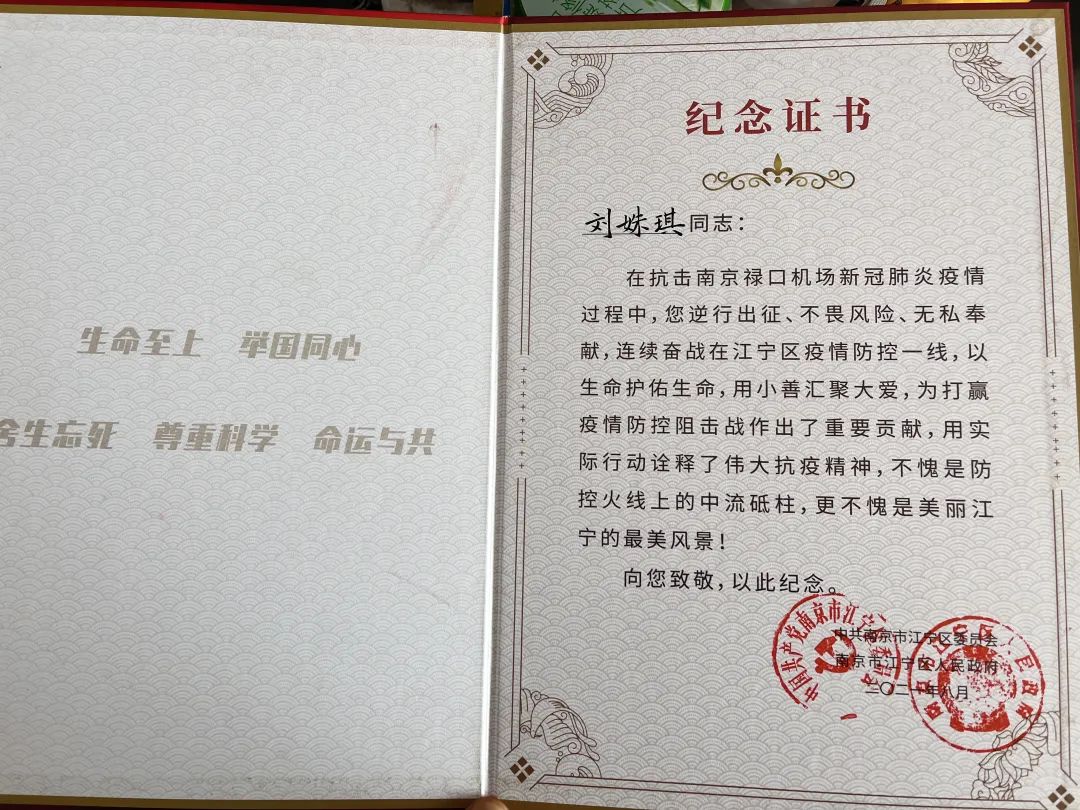 生命至上 举国同心
舍生忘死 尊重科学 命运与共
纪念证书
刘姝琪同志：
在抗击南京禄口机场新冠肺炎疫情
过程中，您逆行出征、不畏风险、无私奉
献，连续奋战在江宁区疫情防控一线，以
生命护佑生命，用小善汇聚大爱，为打赢
疫情防控阻击战作出了重要贡献，用实
际行动诠释了伟大抗疫精神，不愧是防
控火线上的中流砥柱，更不愧是美丽江
宁的最美风景！
向您致敬，以此纪念。
中共南京市江宁区委员会
南京市江宁区人民政府
二〇二一年八月
中国共产党南京市江宁区委员会
南京市江宁区人民政府